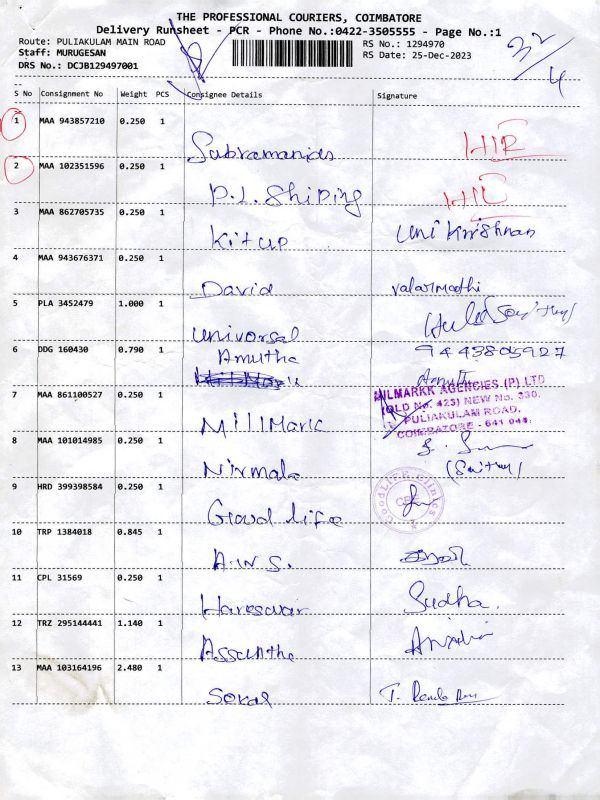 THE PROFESSIONAL COURIERS, COIMBATORE
Delivery Runsheet - PCR - Phone No.:0422-3505555 - Page No.:1
Route: PULIAKULAM MAIN ROAD RS No.: 1294970
Staff: MURUGESAN RS Date: 25-Dec-2023
DRS No.: DCJB129497001
32/4
S No Consignment No Weight PCS Consignee Details Signature
1 MAA 943857210 0.250 1
2 MAA 102351596 0.250 1
P.L. Shiping
3 MAA 862705735 0.250 1
Kitup Uni Krishnan
4 MAA 943676371 0.250 1
David valarmathi
5 PLA 3452479 1.000 1
Universal
6 DDG 160430 0.790 1
Amutha 9443805927
7 MAA 861100527 0.250 1
MILMARKK AGENCIES (P) LTD
(OLD No. 423) NEW No. 330,
PULIAKULAM ROAD,
COIMBATORE - 641 045.
MillMark
8 MAA 101014985 0.250 1
Nirmala
9 HRD 399398584 0.250 1
GOODLIFE CLINICS
CBE
Good life
10 TRP 1384018 0.845 1
11 CPL 31569 0.250 1
Sudha.
12 TRZ 295144441 1.140 1
13 MAA 103164196 2.480 1